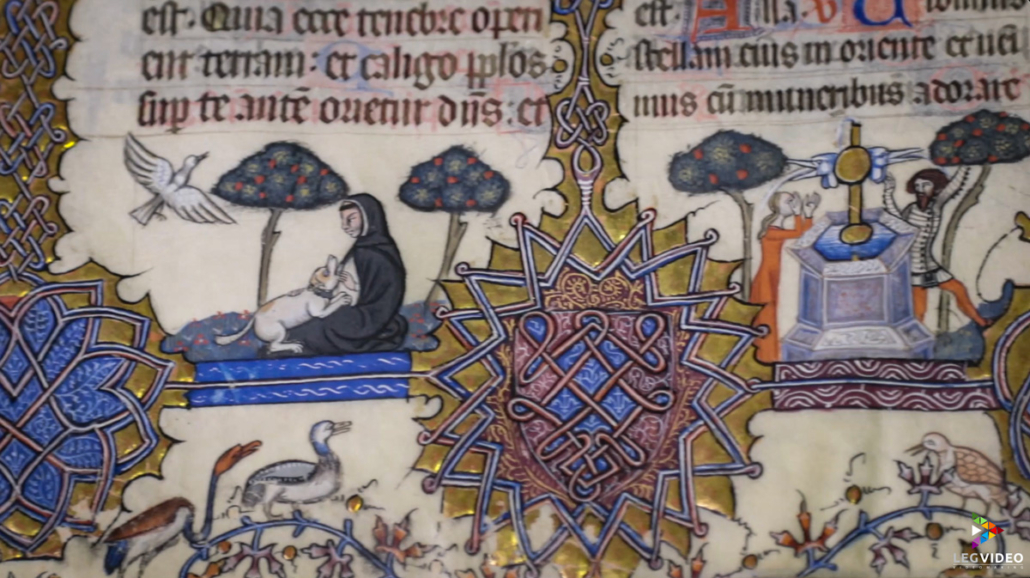 est. Quia ecce tenebre operi
ent terram: et caligo pplōs
sup te autē orietur dn̄s: et
est. Alla. V Vidimus
stellam eius in oriente et ueni
mus cū muneribus adorare
LEGVIDEO